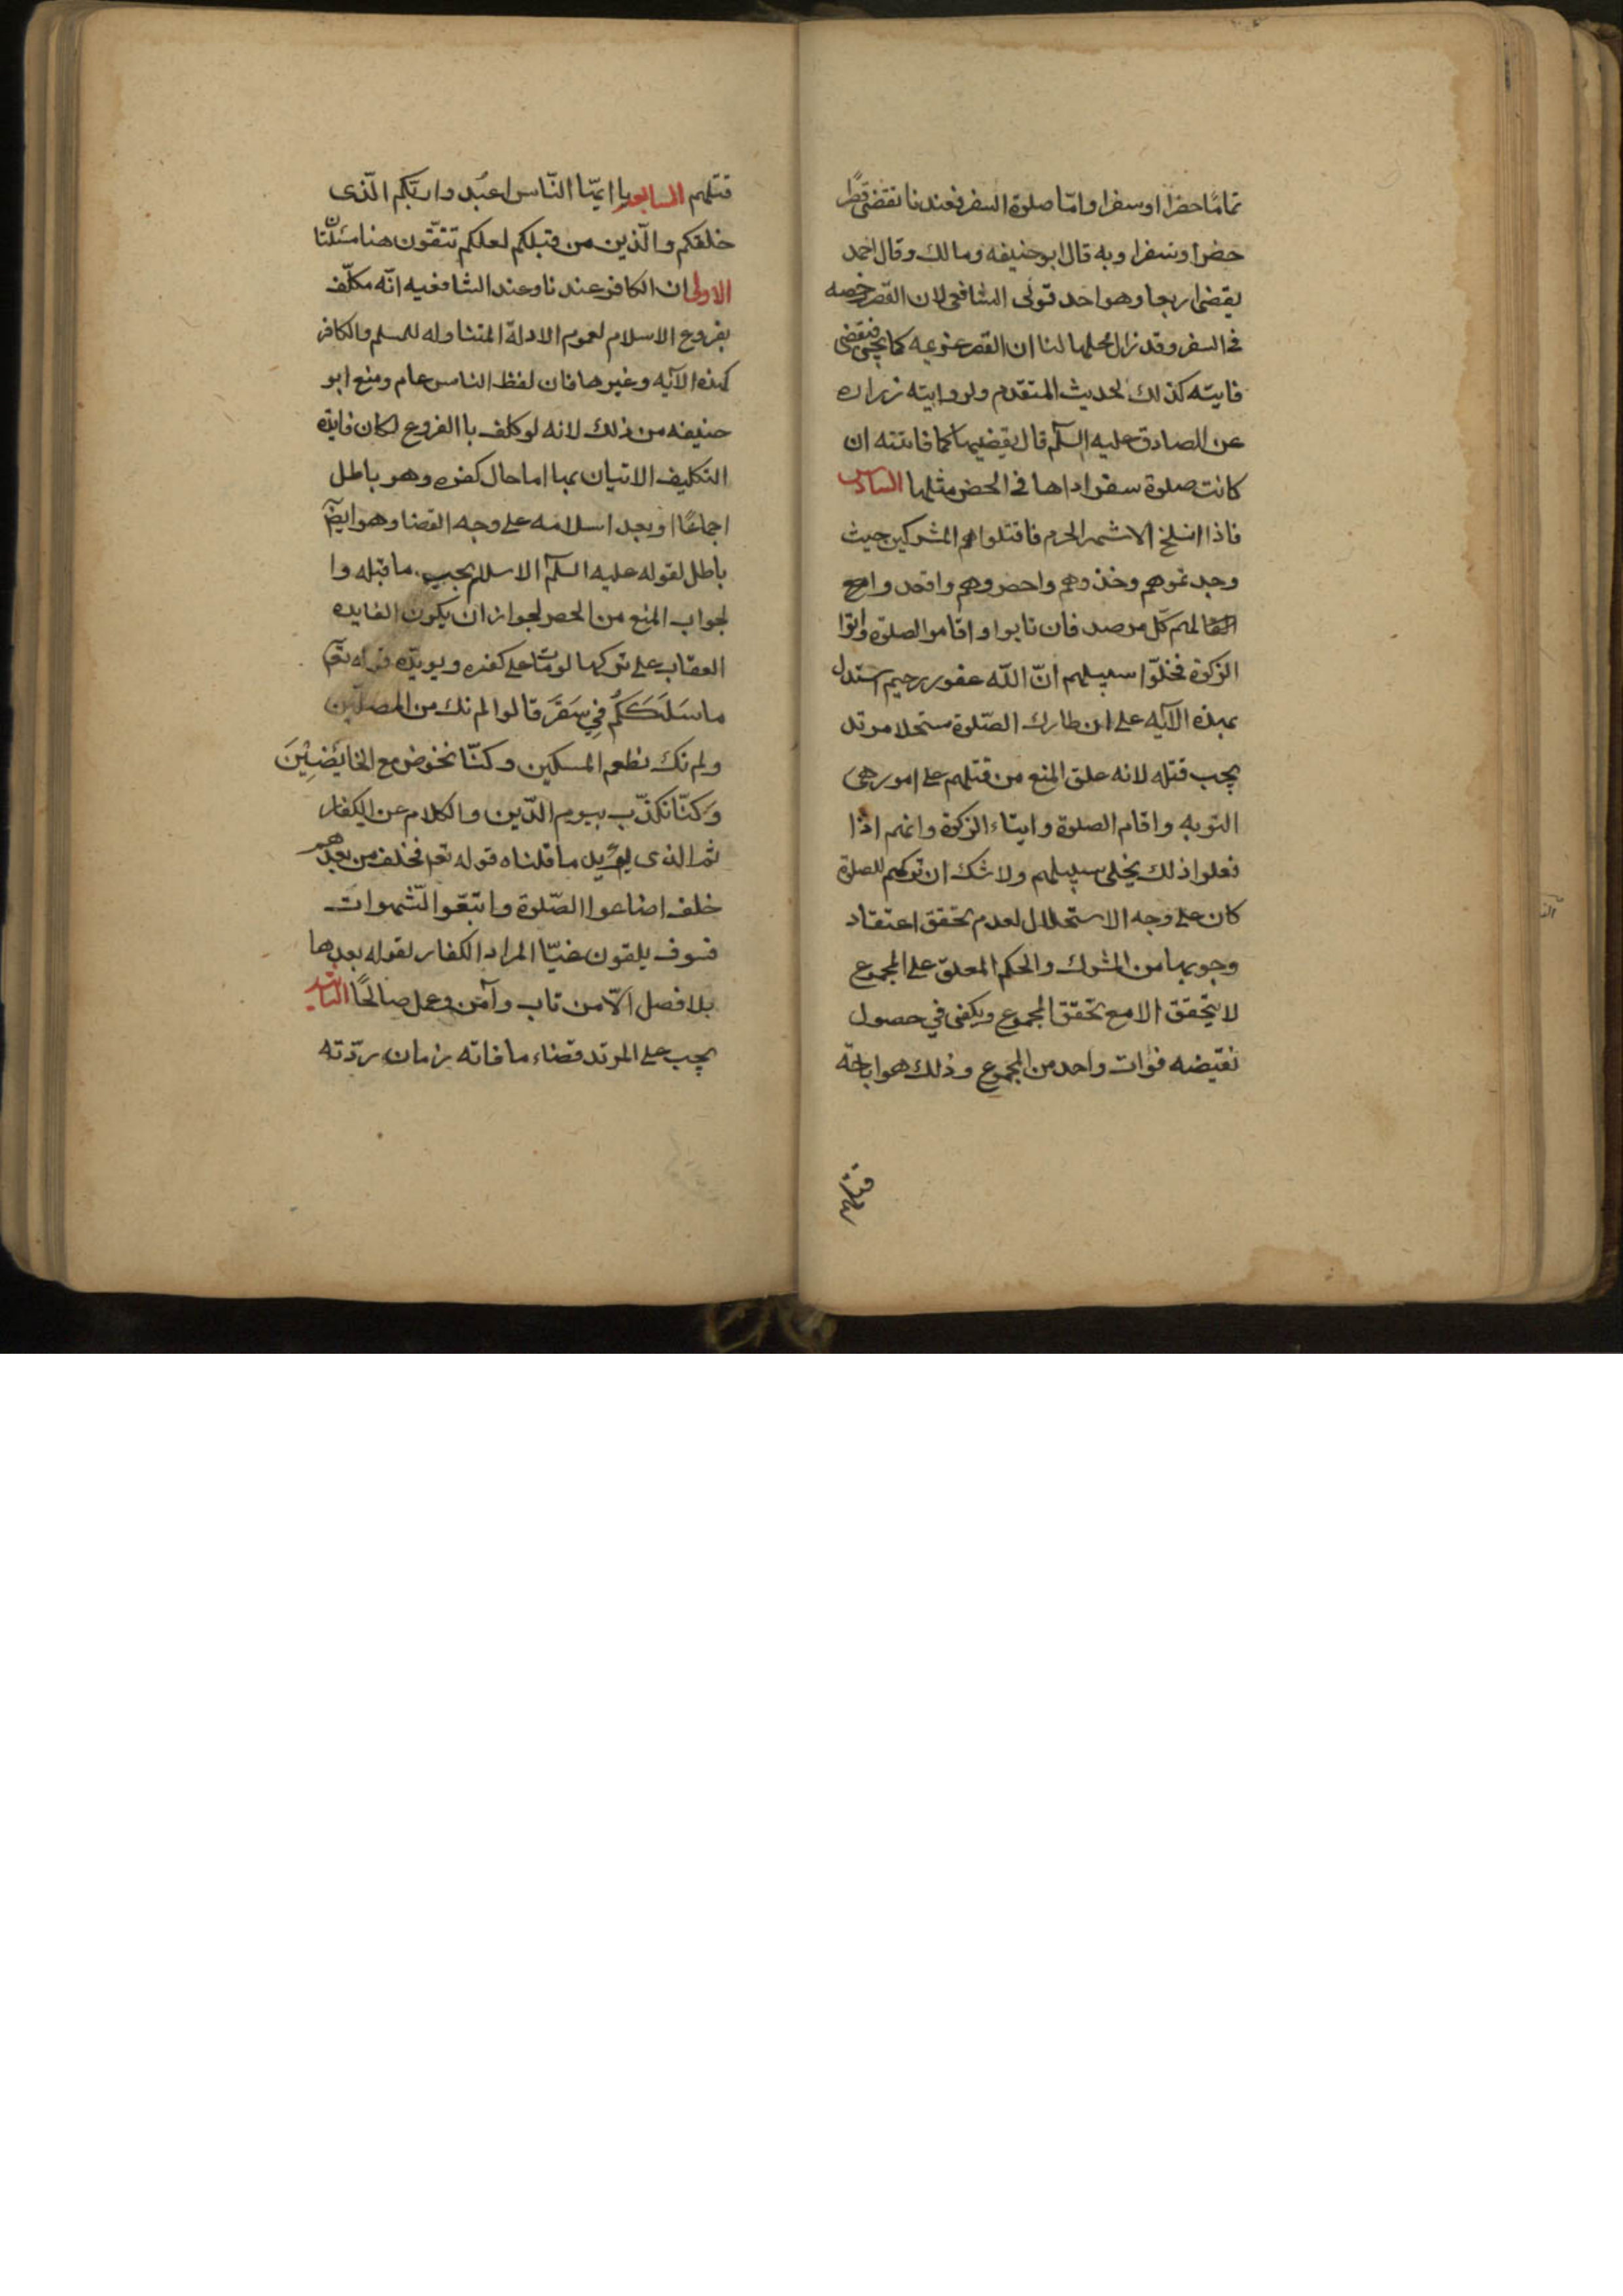 تمامًا حضرا او سفرا وامّا صلوة السفر فعندنا نقضى قصرًا
حضرا وسفرا وبه قال ابو حنيفه ومالك وقال احمد
يقضى اربعا وهو احد قولى الشافعى لان القصر رخصه
فى السفر وقد زال محلها لنا ان القصر عزيمه كما يجئ فيقضى
فايته كذلك لحديث المتقدم ولروايته زراره
عن الصادق عليه السلم قال يقضيها كما فاتته ان
كانت صلوة سفر اداها فى الحضر مثلها السادس
فاذا انسلخ الاشهر الحرم فاقتلوا المشركين حيث
وجدتموهم وخذوهم واحصروهم واقعدوا
لهم كل مرصد فان تابوا واقاموا الصلوة واتوا
الزكوة فخلّوا سبيلهم انّ اللّه غفور رحيم استدل
بهذه الآيه على ان طارك الصّلوة مستحلا مرتد
يجب قتله لانه علق المنع من قتلهم على امور هى
التوبه واقام الصلوة وايتاء الزكوة وانهم اذا
فعلوا ذلك يخلى سبيلهم ولا شك ان تركهم للصلوة
كان على وجه الاستحلال لعدم تحقق اعتقاد
وجوبها من المشرك والحكم المعلق على المجموع
لا يتحقق الا مع تحقق المجموع ويكفى في حصول
نقيضه فوات واحد من المجموع وذلك هو اباحة
قتلهم
قتلهم السابعه يا ايّها النّاس اعبُدوا ربّكم الّذى
خلقكم والّذين من قبلكم لعلكم تتّقون هنا مسئلتان
الاولى ان الكافر عندنا وعند الشافعيه انّه مكلّف
بفروع الاسلام لعموم الادلة المتناوله للمسلم والكافر
كهذه الآيه وغيرها فان لفظ الناس عام ومنع ابو
حنيفه من ذلك لانه لو كلف باالفروع لكان فايدة
التكليف الاتيان بها اما حال كفره وهو باطل
اجماعًا او بعد اسلامه على وجه القضا وهو ايضًا
باطل لقوله عليه السلم الاسلام يجب ما قبله وا
لجواب المنع من الحصر لجواز ان يكون الفايده
العقاب على تركها لو مات على كفره ويويّده قوله تع
ما سَلَكَكُم فِي سَقَرَ قالوا لم نك من المصلّين
ولم نك نطعم المسكين وكنّا نخوض مع الخائضِيْنَ
وَكنّا نكذّب بيوم الدّين والكلام عن الكفار
ثم الذى يؤيد ما قلناه قوله تع فخلف من بعدهم
خلف اضاعوا الصّلوة واتبعوا الشّهوات
فسوف يلقون غيّا المراد الكفار لقوله بعدها
بلا فصل الّا من تاب وآمن وعمل صالحًا الثانيه
يجب على المرتد قضاء ما فاته زمان ردّته